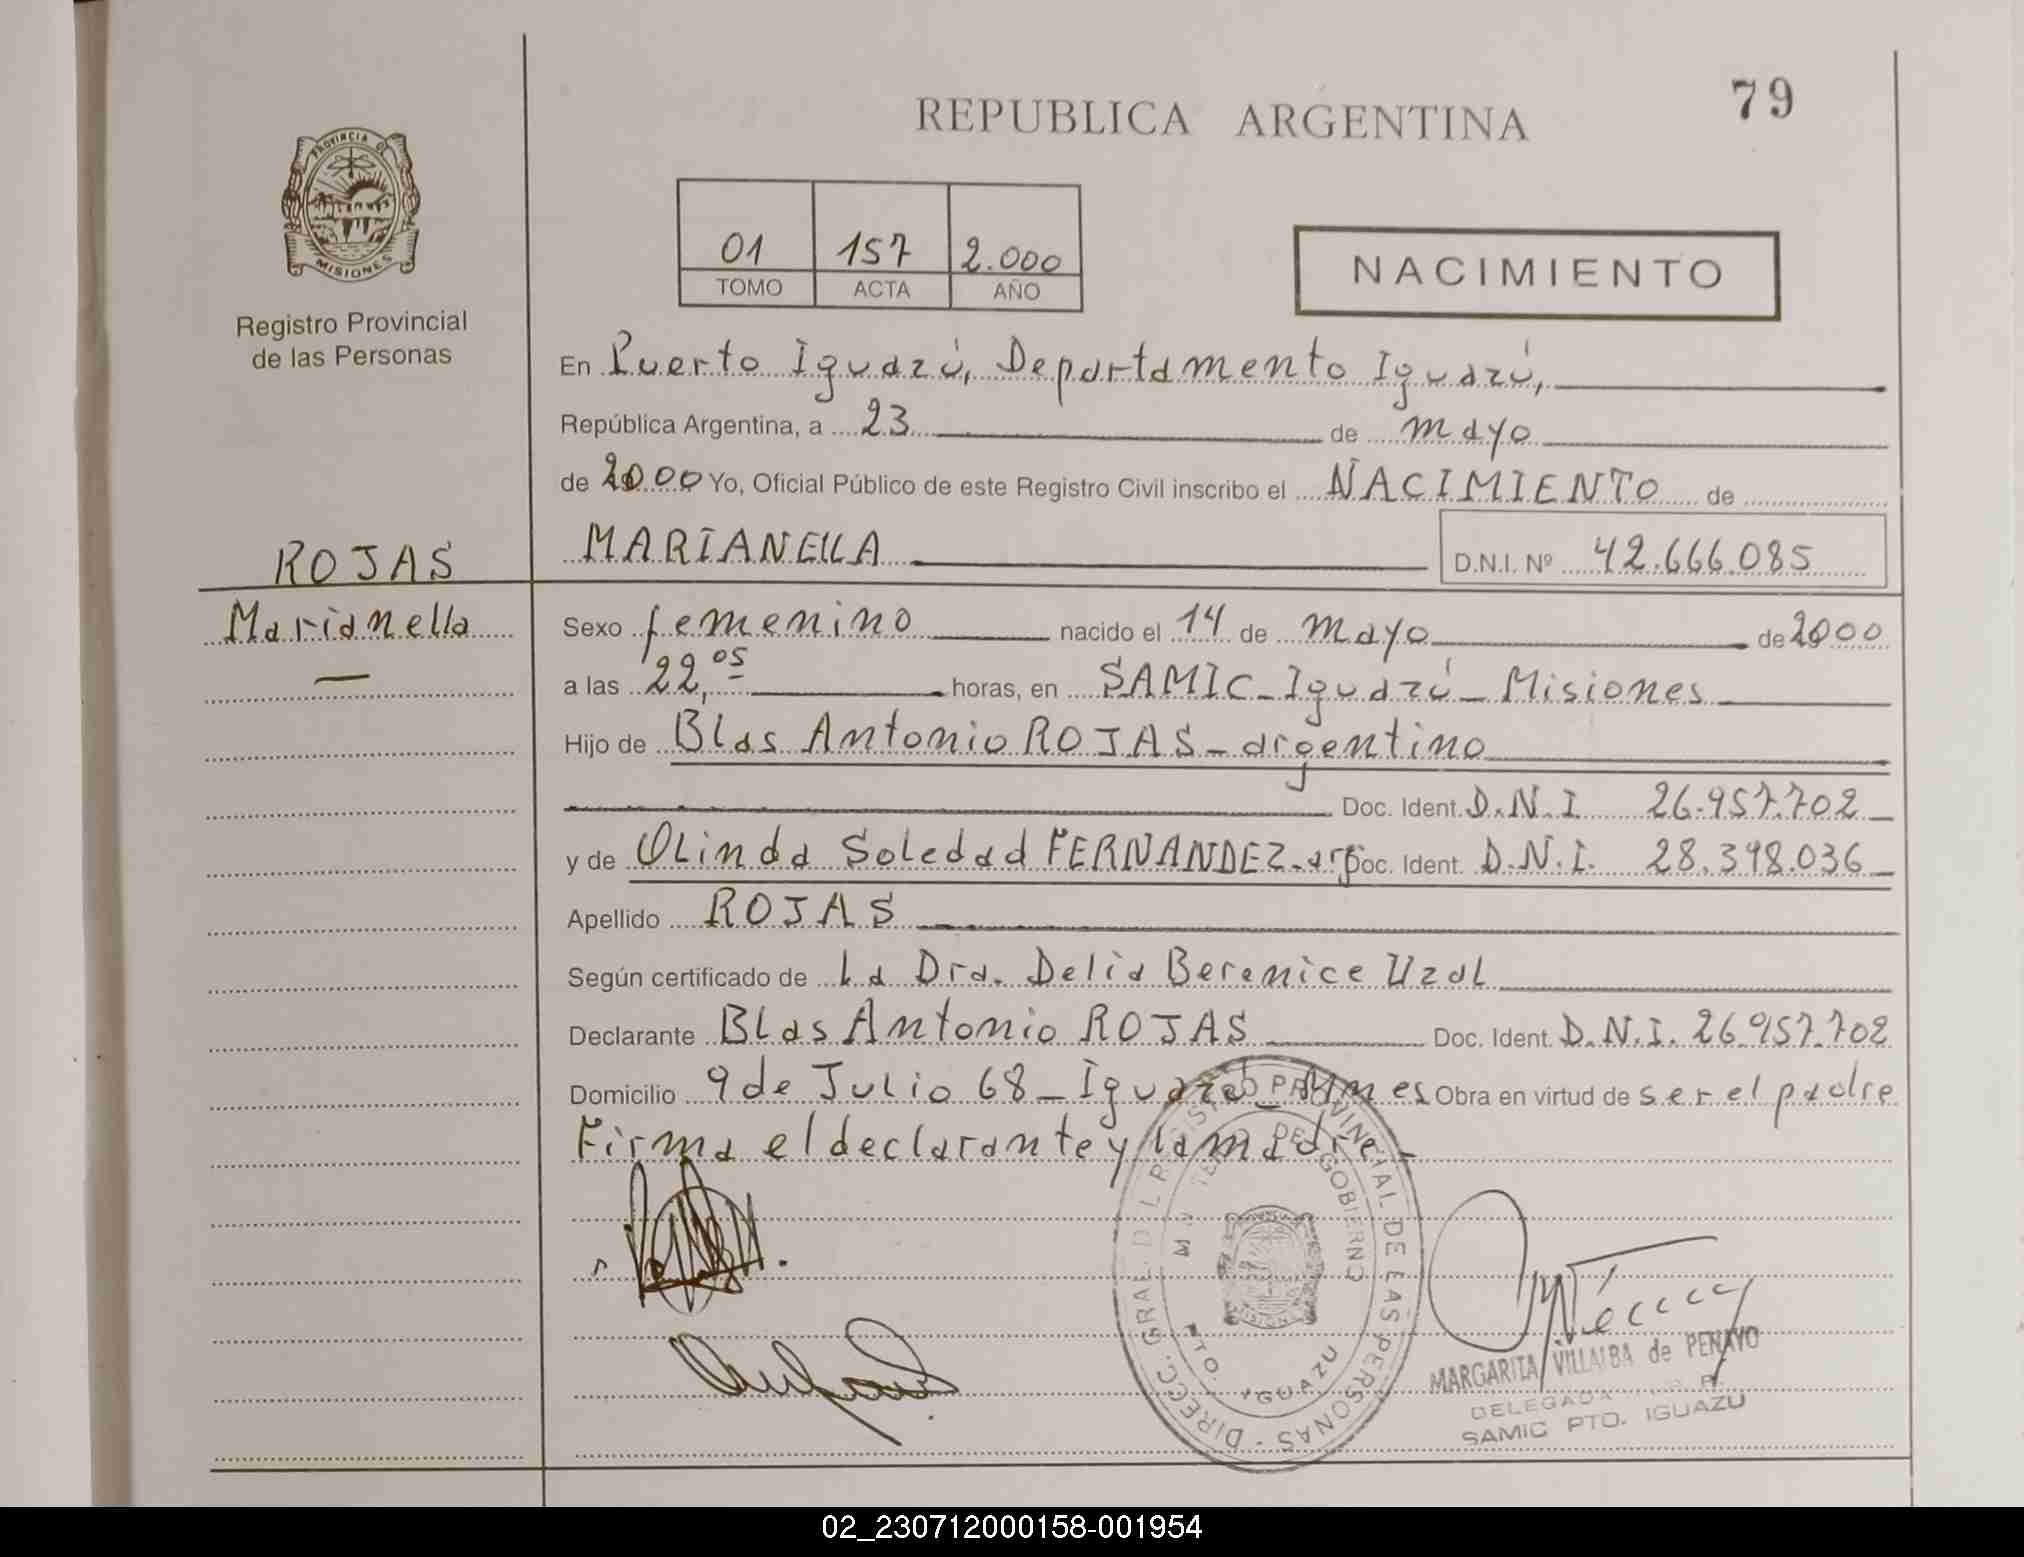 REPUBLICA ARGENTINA
79
PROVINCIA DE
MISIONES
Registro Provincial
de las Personas
01 157 2.000
TOMO ACTA AÑO
NACIMIENTO
En Puerto Iguazú, Departamento Iguazú,
República Argentina, a 23 de mayo
de 2000 Yo, Oficial Público de este Registro Civil inscribo el NACIMIENTO de
MARIANELLA D.N.I. Nº 42.666.085
ROJAS
Marianella
Sexo femenino nacido el 14 de mayo de 2000
a las 22,05 horas, en SAMIC-Iguazú-Misiones
Hijo de Blas Antonio ROJAS-argentino
Doc. Ident. D.N.I 26.957.702
y de OLinda Soledad FERNANDEZ-arg Doc. Ident. D.N.I. 28.398.036
Apellido ROJAS
Según certificado de La Dra. Delia Berenice Uzal
Declarante Blas Antonio ROJAS Doc. Ident. D.N.I. 26.957.702
Domicilio 9 de Julio 68-Iguazú-Mnes Obra en virtud de ser el padre
Firma el declarante y la madre-
DIRECC. GRAL. DEL REGISTRO PROVINCIAL DE LAS PERSONAS
MINISTERIO DE GOBIERNO
PTO. IGUAZU
MARGARITA VILLALBA de PENAYO
DELEGADA
SAMIC PTO. IGUAZU
02_230712000158-001954